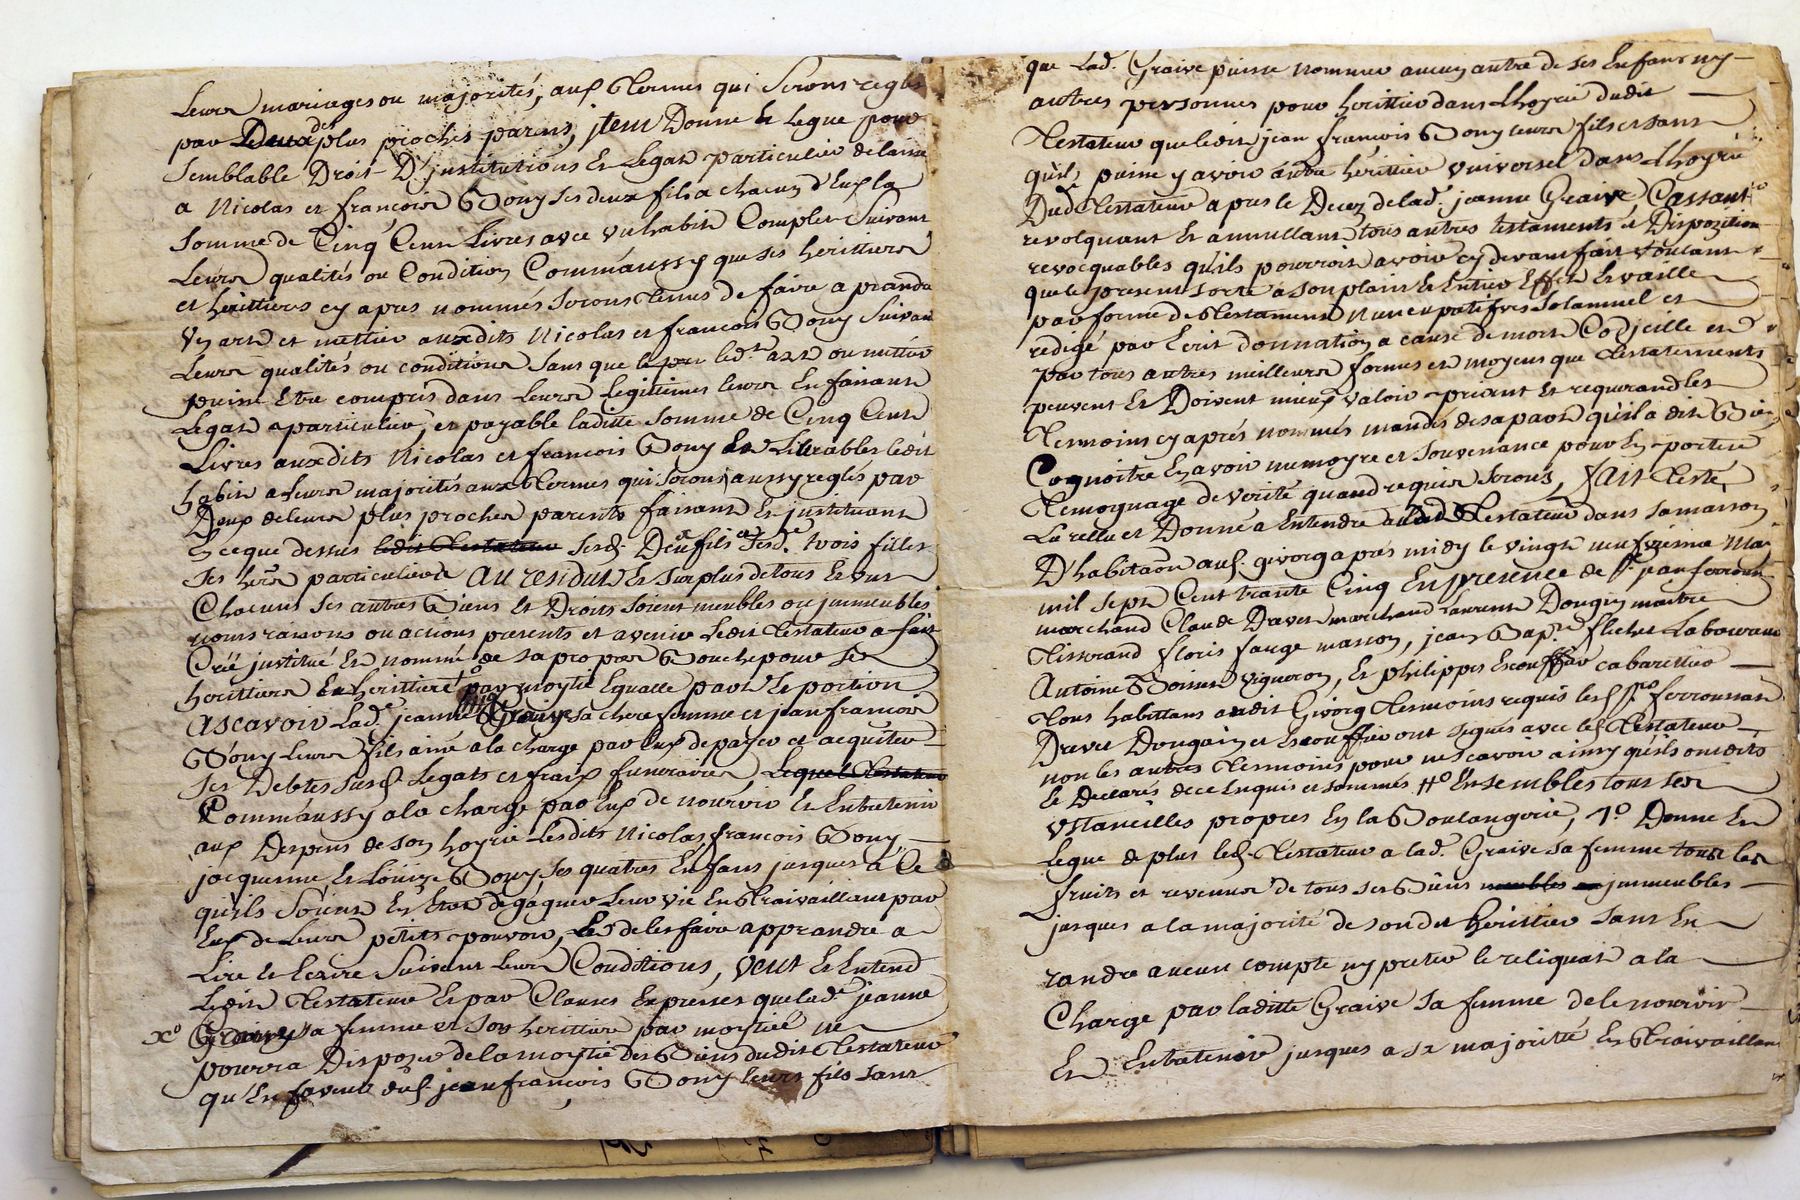 Leurs mariages ou majorités, aux Termes qui seront reglés
par deux des plus proches parens, jtem Donne et legue pour
semblable Droit D'jnstitutions et Legats particulier delaisse
a Nicolas et françois Bony ses deux fils a chacun d'Eux la
somme de Cinq Cent Livres avec un habit Complet suivant
Leurs qualités ou Condition Commaussy que ses herittiers
et herittieres cy apres nommés seront tenus de faire aprandre
un art et mettier auxdits Nicolas et françois Bony suivant
Leurs qualités ou conditions sans que ledt art ou mettier
puisse Etre compris dans Leurs Legitimes leurs En faisant
Legats aparticulier, et payable laditte somme de Cinq Cent
Livres auxdits Nicolas et françois Bony Livrables ledit
habit a leurs majorités aux Termes qui seront aussy reglés par
Deux de leurs plus proches parents faisant Et jnstituant
En ce que dessus ledit Testateur sesd. Deux fils et sesd. trois filles
ses hers particuliers Au residut Et surplus de tous Et uns
Chacuns ses autres Biens Et Droits soient meubles ou jmmeubles
noms raisons ou actions presents et avenir Ledit Testateur a fait
Créé jnstitué Et nommé de sa propre Bouche pour ses
herittiers par moytié Egualle part Et portion
Ascavoir Lade jeanne Graive sa chere femme et jean françois
Bony Leurs fils ainé a la charge par Eux de payer et acquitter
ses Debtes susd. Legats et fraix funeraires, Lequel Testateur
Commaussy a la charge par Eux de nourrir Et Entretenir
aux Despens de son hoyrie Lesdits Nicolas, françois Bony,
jacquemine, Et Louize Bony, ses quatres Enfans jusques a Ce
qu'ils soient En Etat de gagner Leur vie En Travaillant par
Eux de Leurs petits pouvoir, de les faire apprandre a
Lire et Ecrire suivant Leurs Conditions, veut Et Entend
Ledit Testateur Et par Clauses Expresses que lade jeanne
xo sa femme et son herittiere par moytiée ne
pourra Disposer de la moytié des Biens dudit Testateur
qu'En faveur dud. jean françois Bony leurs fils sans
que Lad. Graive puisse nommer aucun autre de ses Enfans ny
autres personnes pour herittier dans Lhoyrie dudit
Testateur que ledit jean françois Bony leurs fils et sans
qu'il puisse y avoir autre herittier universel dans Lhoyrie
Dud Testateur apres le Decez de lad. jeanne Graive, Cassant
revolquant Et annullant tous autres testaments et Dispozition
revocquables qu'ils pourroit avoir cy devant fait voulant
que le present sorte a son plain Et Entier Effet Et vaille
par forme de Testament Nuncupatif solamnel et
redigé par Ecrit donnation a cause de mort Codjcille et
par tous autres meilleurs formes et moyens que Testatements
peuvent Et Doivent mieux valoir priant Et requerand les
Tesmoins cy aprés nommés mandés de sa part qu'il a dit Bien
Cognoitre En avoir memoyre et souvenance pour En porter
Temoignage de verité quand requis seront, fait Testé,
Lu rellu et Donné a Entendre audt Testateur dans sa maison
D'habitaon aud. givorg aprés midy le vingt neufvieme Mai
mil sept Cent trante Cinq En presence de sr. jean ferroussat
marchand Claude Drevet marchand Laurent Dougin maitre
Tisserand floris fauge masson, jean Baptte fliches Laboureur
Antoine Boissat vigneron, Et Philippes Escouffier cabarettier
Tous habittans audit Givorg Tesmoins requis lesd. srs ferroussat
Drevet Dougain et Escouffier ont signés avec led. Testateur
non les autres Tesmoins pour ne scavoir ainsy qu'ils ont dits
et Declarés de ce Enquis et sommés #o Ensembles tous ses
ustancilles propres En la Boulangerie, 1o Donne Et
Legue de plus led. Testateur a lad. Graive sa femme tous les
fruits et revenues de tous ses Biens meubles et jmmeubles
jusques a la majorité de son dit heritier sans En
randre aucun compte ny preter le reliquat a la
Charge par laditte Graive sa femme de le nourrir
Et Entretenir jusques a sa majoritté En Travaillant